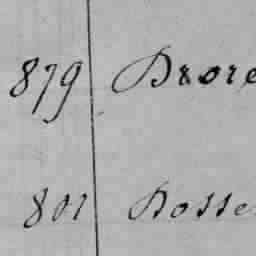 879 Drore
801 Dosse